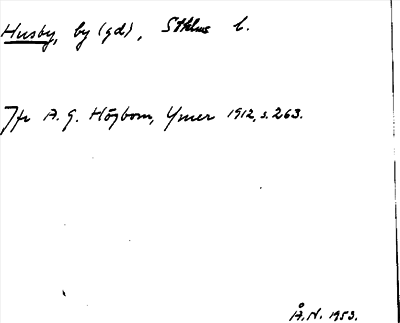 Husby, by (gd), Sthlms l.
Jfr A. G. Högbom, Ymer 1912, s. 263.
Å. N. 1953.